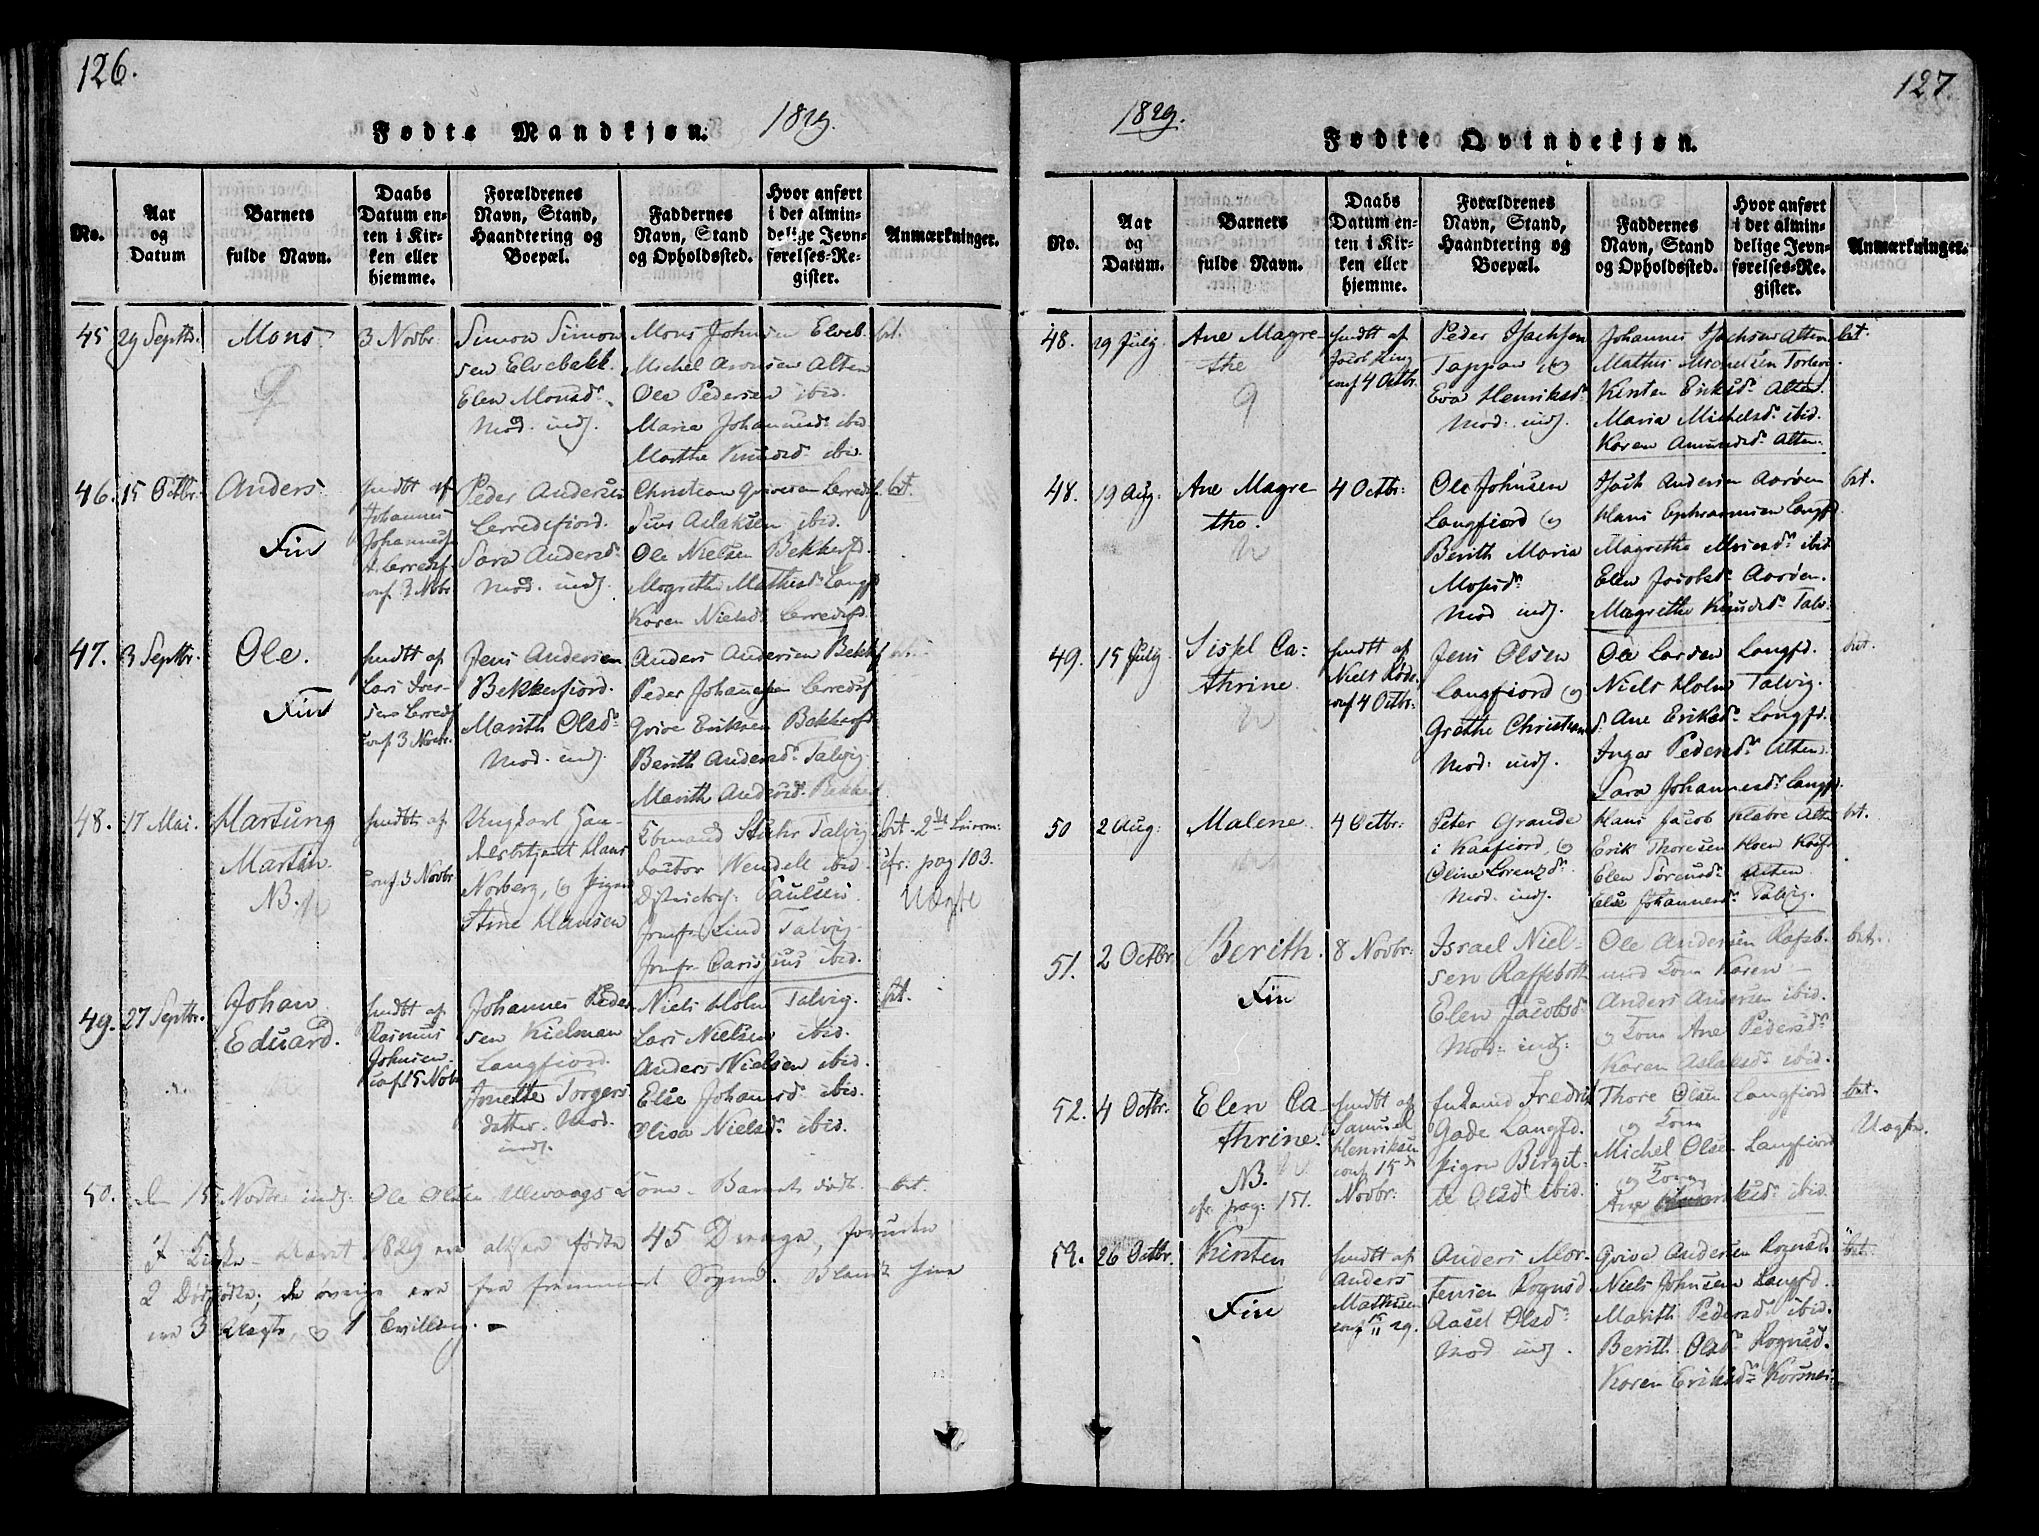 126.
Fødte Mandkjøn. 1829.
No.
Aar og Datum
Barnets fulde Navn.
Daabs Datum enten i Kirken eller hjemme.
Forældrenes Navn, Stand, Haandtering og Boepæl.
Faddernes Navn, Stand og Opholdssted.
Hvor anført i det almindelige Jevnførelses-Register.
Anmærkninger.
45 29 Septb. Mons 3 Novbr.
Simon Simonsen Elvebakk.
Elen Monsd.
Mod. indj.
Mons Johnsen Elveb.
Michel Aronsen Alten
Ole Pedersen ibid.
Maria Johannesd. ibid
Marthe Knudsd. ibid.
46. 15 Octbr. Anders
Fin
hmdt af
Johannes
Johanness.
Lerredsf.
conf. 3 Nobr
Peder Andersen
Lerredsfiord.
Sara Andersd.
Mod. indj.
Christian Grivesen Lerredsf. bt.
Siur Aslaksen ibid.
Ole Nielsen Bekkerfd.
Magrethe Mathisd. Langfd
Karen Nielsd. Lerredsfd.
47. 3 Septbr. Ole.
Fin
hmdt af
Lars Iversen Lerredsf
conf. 3 Novbr.
Jens Andersen
Bekkerfiord.
Marith Olsd.
Mod. indj.
Anders Andersen Bekkf.
Peder Johannesen Lerredsf
Grive Eriksen Bekkerfd.
Berith Andersd. Talvig.
Marith Andersd. Bekkerf.
48. 17 Mai. Hartung
Martin.
NB.
hmdt af
conf. 3 Novbr
Ungkarl Handelsbetjent Hans
Norberg, og Pigen
Stine Hansen
Edmund Stuhr Talvig
Factor Wendelt ibid.
Districtsch. Paulsen
Jomfr. Lind Talvig
Jomfr. ibid.
cfr. pag 103.
Uægte
49. 27 Septbr. Johan
Eduard.
hmdt af
Rasmus
Johnsen.
conf 15 Nobr
Johannes Pedersen Kielman
Langfiord.
Jonette Torgersdatter. Mod.
indj.
Niels Holm Talvig. bt.
Lars Nielsen ibid.
Anders Nielsen ibid.
Else Johannesd. ibid.
Olisa Nielsd. ibid.
50. den 15 Novbr. indj. Ole Olsen Ullevaags Kone. Barnet dødt.
Aaret 1829 ere altsaa fødte 45 Drenge, foruden
2 Dødfødte; de øvrige ere fra fremmed Sogne. Blandt hine
ere 3 Uægte, og 1 Tvilling.
127.
1829. Fødte Qvindekjøn.
No.
Aar og Datum.
Barnets fulde Navn.
Daabs Datum enten i Kirken eller hjemme.
Forældrenes Navn, Stand, Haandtering og Boepæl.
Faddernes Navn, Stand og Opholdssted.
Hvor anført i det almindelige Jevnførelses-Register.
Anmærkninger.
48. 29 July. Ane Magrethe
hmdt af
Jacob
conf 4 Octbr.
Peder Isachsen
Tappen, og
Eva Henriksd.
Mod. indj.
Johannes Isachsen Alten bt.
Mathis Monsen
Kirsten Eriksd. Alten.
Maria Michelsd. ibid.
Karen Amundsd. Alten.
48. 19 Aug. Ane Magretho.
4 Octbr:
Ole Johnsen
Langfiord og
Berith Maria
Mosesd.
Mod indj.
Isach Andersen Aarøen bt.
Hans Ephraimsen Langfd
Magrethe ibid
Elen Jacobsd. Aarøen.
Magrethe Knudsd. Talv.
49. 15 July Sissel Cathrine.
hmdt af
Niels
conf 4 Octbr:
Jens Olsen
Langfiord og
Grethe Christiansd.
Mod. indj.
Ole Larsen Langfd. bt.
Niels Holm Talvig.
Ane Eriksd. Langfd.
Inger Pedersd. Alten.
Sara Johannesd. Langfd
50 2 Aug: Malene.
4 Octbr:
Peter Grande
i Kaafiord, og
Oline Lorenzd.
Mod. indj.
Hans Jacob Klæboe Alten bt.
Erik Thoresen Hoen Kaaf.
Elen Sørensd. Alten
Else Johannesd. Talvig.
51. 2 Octbr Berith.
Fin
8 Novbr:
Israel Nielsen Raffsbotn
Elen Jacobsd.
Mod: indj:
Ole Andersen Rafsb. bt.
med Kone Karen
Anders Andersen ibid.
og Kone Ane Pedersd.
Karen Aslaksd. ibid.
52. 4 Octbr. Elen Cathrine.
NB.
cfr. pag: 151.
hmdt af
Samuel
Henriksen
conf 15de
Novbr:
Enkemand Fredrik
Gade Langfd.
Pigen Birgitte Olsd. ibid.
Thore Olsen Langfiord bt.
og Kone
Michel Olsen Langfiord
og Kone
Ane ibid.
Uægte.
59. 26 Octbr. Kirsten
Fin
hmdt af
Anders
Mathisen
conf 15/11 29.
Anders Mortensen Rognsd
Aasel Olsd.
Mod indj.
Grive Andersen Rognsd. bt.
Niels Johnsen Langfd.
Marith Pedersd. ibid.
Berith Olsd. Rognsd.
Karen Eriksd. Korsnes